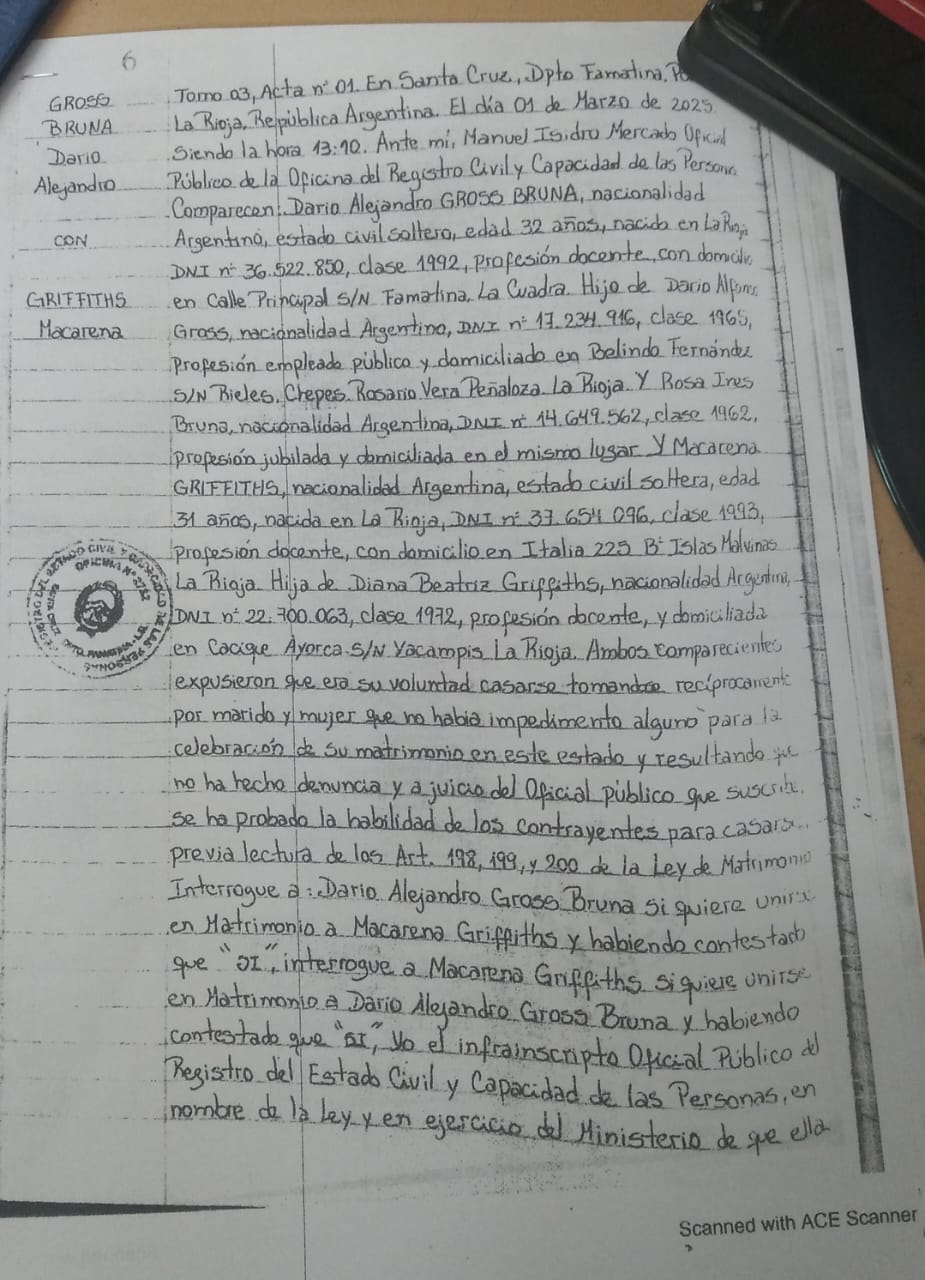 6
GROSS
BRUNA
Dario
Alejandro
CON
GRIFFITHS
Macarena
Tomo 03, Acta n° 01. En Santa Cruz, Dpto Famatina,
La Rioja, República Argentina. El día 01 de Marzo de 2025
Siendo la hora 13:10. Ante mí, Manuel Isidro Mercado Oficial
Público de la Oficina del Registro Civil y Capacidad de las Persona
Comparecen: Dario Alejandro GROSS BRUNA, nacionalidad
Argentino, estado civil soltero, edad 32 años, nacido en La Rioja
DNI n° 36.522.850, clase 1992, profesión docente, con domicilio
en Calle Principal S/N Famatina, La Cuadra. Hijo de Dario Alfons
Gross, nacionalidad Argentino, DNI n° 17.234.916, clase 1965,
profesión empleado público y domiciliado en Belindo Fernández
S/N Rieles. Chepes. Rosario Vera Peñaloza. La Rioja. Y Rosa Ines
Bruna, nacionalidad Argentina, DNI n° 14.649.562, clase 1962,
profesión jubilada y domiciliada en el mismo lugar Y Macarena
GRIFFITHS, nacionalidad Argentina, estado civil soltera, edad
31 años, nacida en La Rioja, DNI n° 37.654.096, clase 1993,
profesión docente, con domicilio en Italia 225 B° Islas Malvinas
La Rioja Hija de Diana Beatriz Griffiths, nacionalidad Argentina,
DNI n° 22.700.063, clase 1972, profesión docente, y domiciliada
en Cacique Ayorca S/N Yacampis La Rioja. Ambos comparecientes
expusieron que era su voluntad casarse tomandose recíprocament
por marido y mujer que no habia impedimento alguno para la
celebración de su matrimonio en este estado y resultando que
no ha hecho denuncia y a juicio del Oficial público que suscribe.
se ha probado la habilidad de los contrayentes para casars
previa lectura de los Art. 198, 199, y 200 de la Ley de Matrimonio
Interrogue a: Dario Alejandro Gross Bruna si quiere unirse
en Matrimonio a Macarena Griffiths y habiendo contestado
que "SI", interrogue a Macarena Griffiths si quiere unirse
en Matrimonio a Dario Alejandro Gross Bruna y habiendo
contestado que "SI", Yo el infrainscripto Oficial Público del
Registro del Estado Civil y Capacidad de las Personas, en
nombre de la Ley y en ejercicio del Ministerio de que ella
Scanned with ACE Scanner